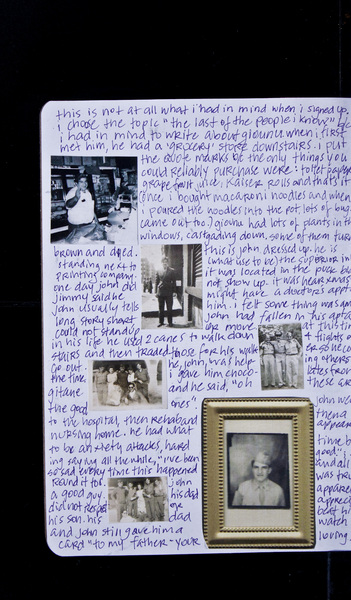 this is not at all what i had in mind when i signed up.
i chose the topic "the last of the people i know"
i had in mind to write about giovnni. when i first
met him, he had a "grocery" store downstairs. i put
the quote marks bc the only things you
could reliably purchase were: toilet paper
grape fruit juice. kaiser rolls and that's it
once i bought macaroni noodles and when
i poured the noodles into the pot lots of bugs
came out too. giovnni had lots of plants in th
windows, cascading down. some of them turn
brown and dried. this is john dressed up. he is
standing next to (what use to be) the superior in
printing company. it was located in the puck bu
one day john did not show up. it was near xmas
jimmy said he might have a doctor's app
john usually tells him. i felt something was
long story short john had fallen in his apt
could not stand up or move at this tim
in his life he used 2 canes to walk down 4 flights o
stairs and then traded those for his walke
go out he, john, was help ing others
the time i gave him choco- lates from
gitane and he said, "oh these are
the good ones" john we
to the hospital, then rehab and then a
nursing home. he had what appear
to be anxiety attacks, hard time b
ing saying all the while, "i've been good" i
so sad every time this happened
round it to john was tru
a good guy his dad appare
did not respect one apprec
his son. his dad beat hi
and john still gave him a watch
card "to my father - your loving